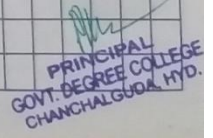 PRINCIPAL
GOVT. DEGREE COLLEGE
CHANCHALGUDA, HYD.